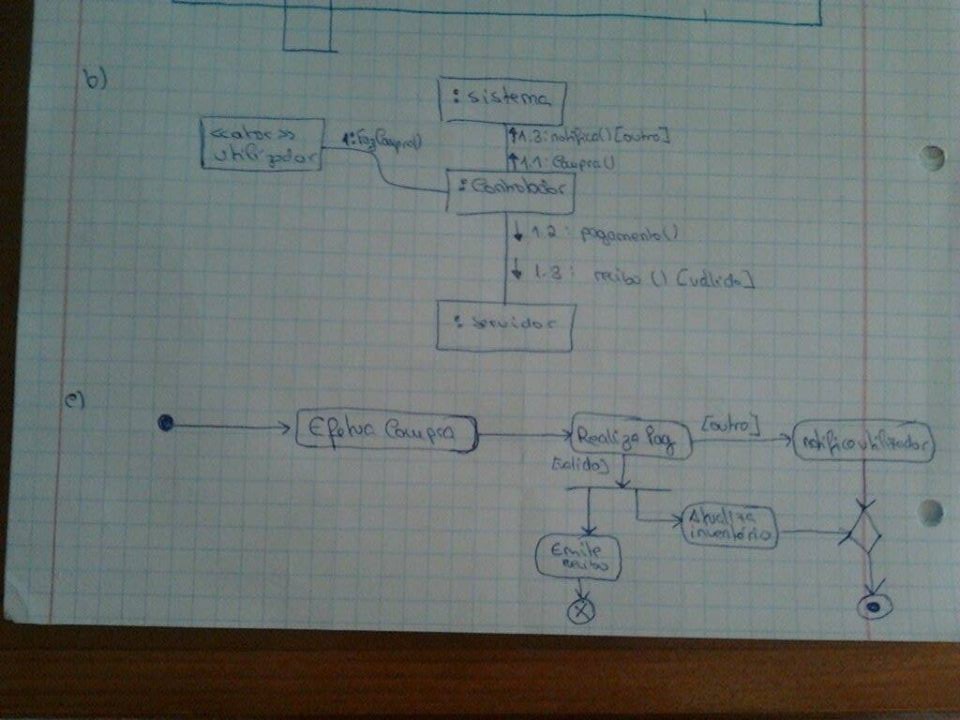 b)
: sistema
<<ator>>
utilizador
1: FazCompra()
↑1.3: notifica() [outro]
↑1.1: Compra()
: Controlador
↓ 1.2 : pagamento()
↓ 1.3 : recibo () [válido]
: Servidor
c)
Efetua Compra
Realiza Pag
[outro]
notifica utilizador
[válido]
Atualiza
inventário
Emite
recibo